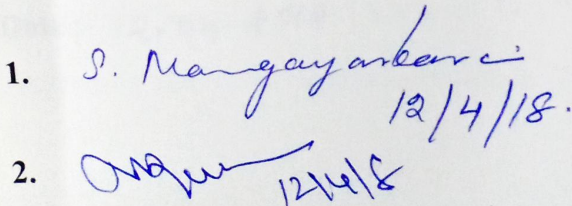 1. S. Mangayarkarasi
12/4/18.
2.
12/4/8